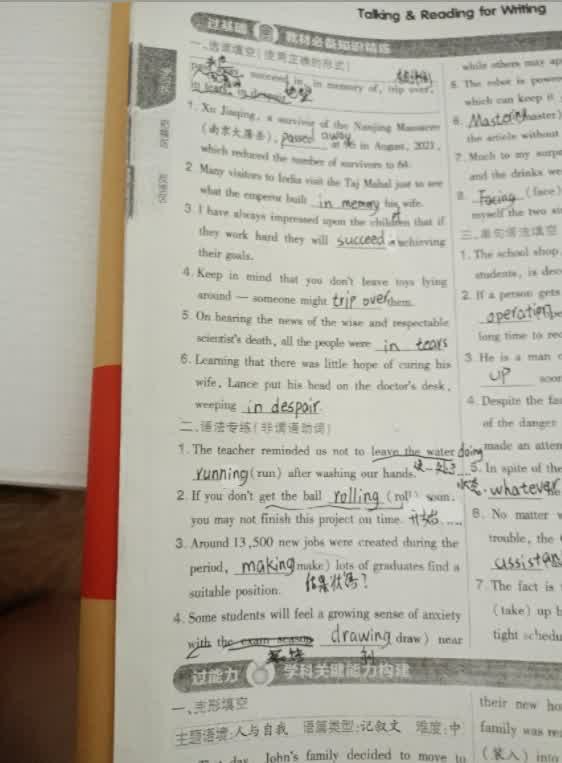 Talking & Reading for Writing
过基础 教材必备知识精练
一、选词填空(使用正确的形式)
succeed in, in memory of, trip over,
in tears, in despair
1. Xu Jiaqing, a survivor of the Nanjing Massacre
(南京大屠杀), passed away at 96 in August, 2021,
which reduced the number of survivors to 64.
2. Many visitors to India visit the Taj Mahal just to see
what the emperor built in memory his wife.
3. I have always impressed upon the children that if
they work hard they will succeed achieving
their goals.
4. Keep in mind that you don't leave toys lying
around — someone might trip over them.
5. On hearing the news of the wise and respectable
scientist's death, all the people were in tears
6. Learning that there was little hope of curing his
wife, Lance put his head on the doctor's desk,
weeping in despair.
二、语法专练(非谓语动词)
1. The teacher reminded us not to leave the water doing
running (run) after washing our hands.
2. If you don't get the ball rolling (roll) soon,
you may not finish this project on time. 开始……
3. Around 13,500 new jobs were created during the
period, making make) lots of graduates find a
suitable position. 结果状语?
4. Some students will feel a growing sense of anxiety
with the exam season drawing draw) near
过能力 学科关键能力构建
一、完形填空
主题语境:人与自我 语篇类型:记叙文 难度:中
day, John's family decided to move to
while others may ap
5. The robot is power
which can keep it
6. Mastering master)
the article without
7. Much to my surp
and the drinks we
8. Facing (face)
myself the two si
三、单句语法填空
1. The school shop,
students, is dec
2. If a person gets
operation, be
long time to rec
3. He is a man
up soon
4. Despite the fac
of the danger
made an atten
5. In spite of the
whatever he
6. No matter w
trouble, the
assistan
7. The fact is
(take) up b
tight schedu
their new ho
family was re
(装入) into